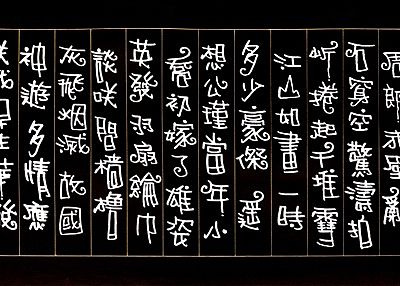 周郎赤壁亂
石穿空驚濤拍
岸捲起千堆雪
江山如畫一時
多少豪傑遙
想公瑾當年小
喬初嫁了雄姿
英發羽扇綸巾
談笑間檣櫓
灰飛烟滅故國
神遊多情應
笑我早生華髮